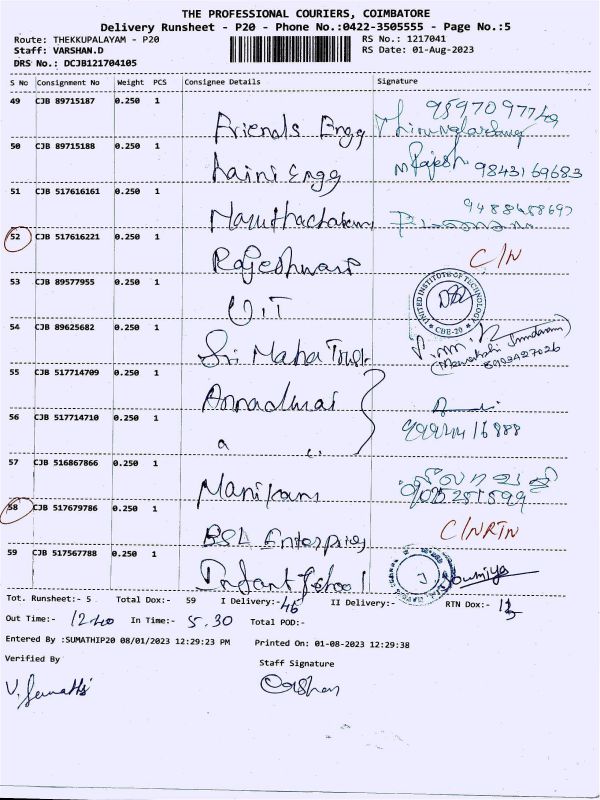 THE PROFESSIONAL COURIERS, COIMBATORE
Delivery Runsheet - P20 - Phone No.:0422-3505555 - Page No.:5
Route: THEKKUPALAYAM - P20 RS No.: 1217041
Staff: VARSHAN.D RS Date: 01-Aug-2023
DRS No.: DCJB121704105
S No Consignment No Weight PCS Consignee Details Signature
49 CJB 89715187 0.250 1 Friends Engg
50 CJB 89715188 0.250 1 Engg M Rajesh 9843169683
51 CJB 517616161 0.250 1
52 CJB 517616221 0.250 1 Rajeshwari C/N
53 CJB 89577955 0.250 1 UIT UNITED INSTITUTE OF TECHNOLOGY CBE-20
54 CJB 89625682 0.250 1 Sri Maha Trust
55 CJB 517714709 0.250 1 Annadurai
56 CJB 517714710 0.250 1
57 CJB 516867866 0.250 1
58 CJB 517679786 0.250 1 BSL Enterprises C/NRTN
59 CJB 517567788 0.250 1 Infant School Soumiya
Tot. Runsheet:- 5 Total Dox:- 59 I Delivery:- 46 II Delivery:- RTN Dox:- 13
Out Time:- 12.40 In Time:- 5.30 Total POD:-
Entered By :SUMATHIP20 08/01/2023 12:29:23 PM Printed On: 01-08-2023 12:29:38
Verified By Staff Signature
Varshan